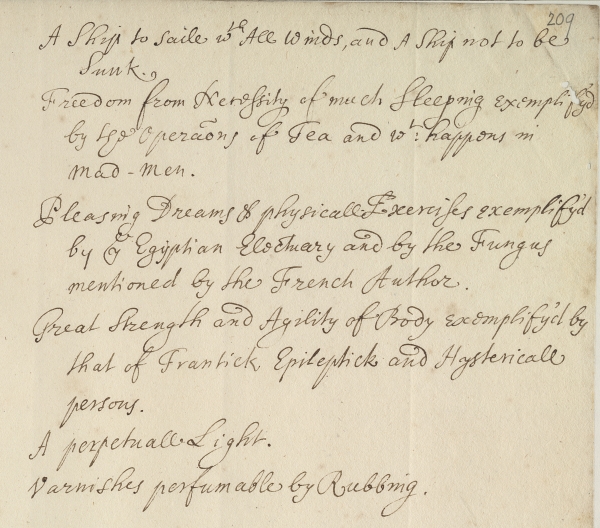 209
A Ship to saile wth All Winds, and A Ship not to be
Sunk.
Freedom from Necessity of much Sleeping exemplify'd
by the Operations of Tea and wt: happens in
Mad-Men.
Pleasing Dreams & physicall Exercises exemplify'd
by ye Egyptian Electuary and by the Fungus
mentioned by the French Author.
Great Strength and Agility of Body exemplify'd by
that of Frantick Epileptick and Hystericall
persons.
A perpetuall Light.
Varnishes perfumable by Rubbing.